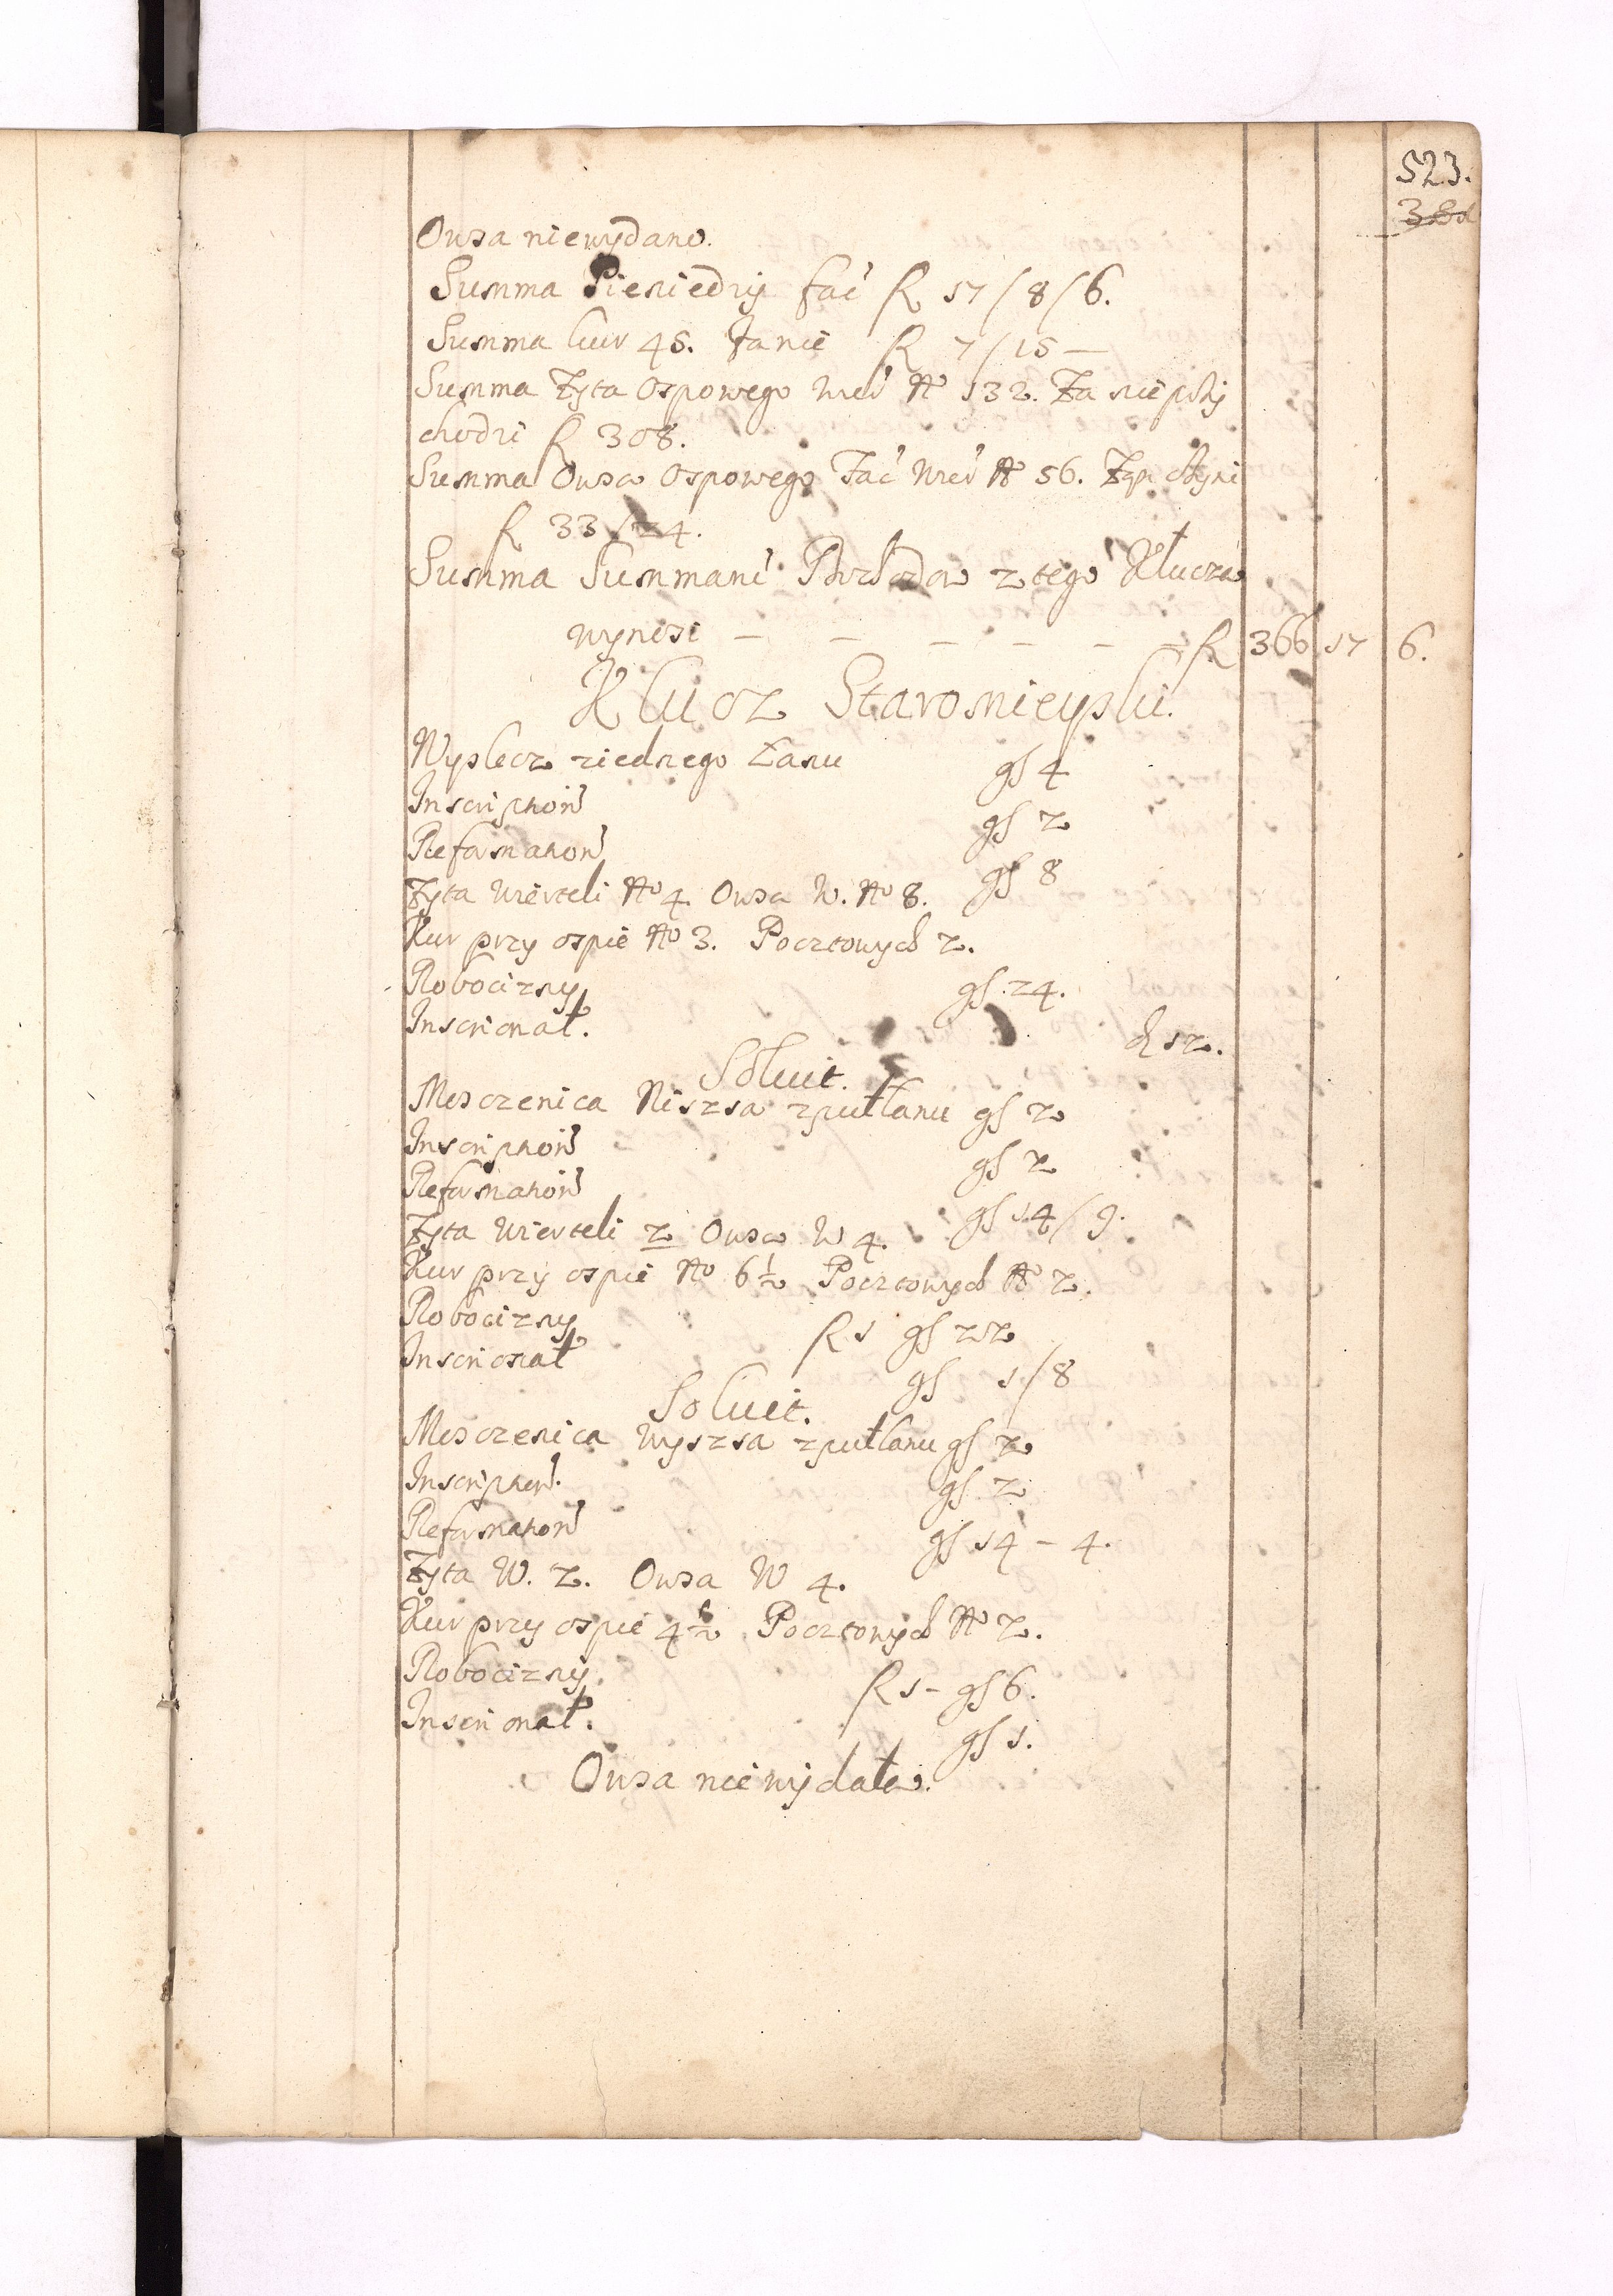 523.
Owsa niewydano.
Summa Pieniedzy fać R 17/8/6.
Summa kur 45. Zanie R 7/15 —
Summa Zyta Ospowego Wieŕ No 132. Za nie przy
chodzi R 308.
Summa Owsa Ospowego Fać Wieŕ No 56.
R 33/24.
Summa Summarū z tego Klucza
wynosi — — — — — — R 366 17 6.
Klucz Staromieyski.
Wyslecz ziednego Łanu gs 4
Inscription gs 2
Reformation gs 8
Zyta Wierteli No 4 Owsa W. No 8.
Kur przy ospie No 3. Pocztowych 2.
Robocizny gs 24.
Inscrionał. d 12.
Soluit.
Mesczenica Niszsa zpułłanu gs 2
Inscription gs 2
Reformation gs 14/9.
Zyta Wierteli 2 Owsa W 4.
Kur przy ospie No 6½ Pocztowych No 2.
Robocizny R 1 gs 22
Inscrionał gs 1/8
Soluit.
Mesczenica Wyszsa zpułłanu gs 2
Inscription gs 2
Reformation gs 14 – 4.
Zyta W. 2. Owsa W 4.
Kur przy ospie 4½ Pocztowych No 2.
Robocizny R 1 – gs 6.
Inscrionał. gs 1.
Owsa niewydała.